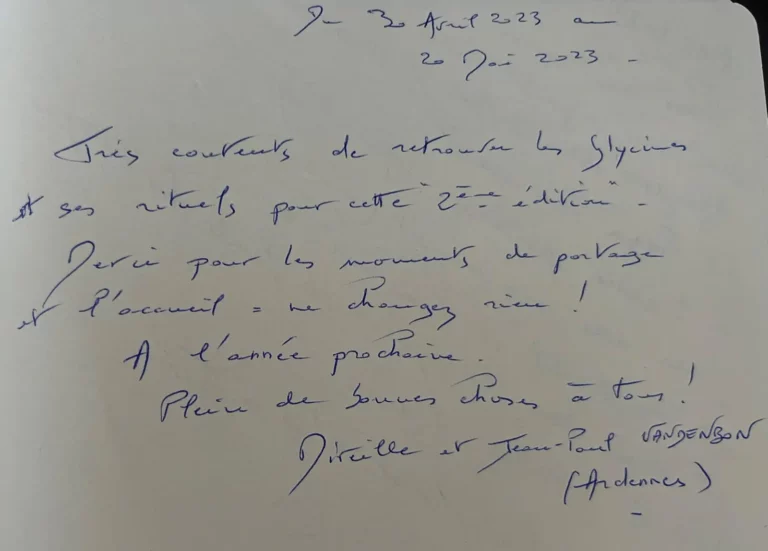 Du 30 Avril 2023 au
20 Mai 2023 -
Très contents de retrouver les Glycines
et ses rituels pour cette "2ème édition" -
Merci pour les moments de partage
et l'accueil = ne changez rien !
A l'année prochaine.
Plein de bonnes choses à tous !
Mireille et Jean-Paul VANDENBON
(Ardennes)
-